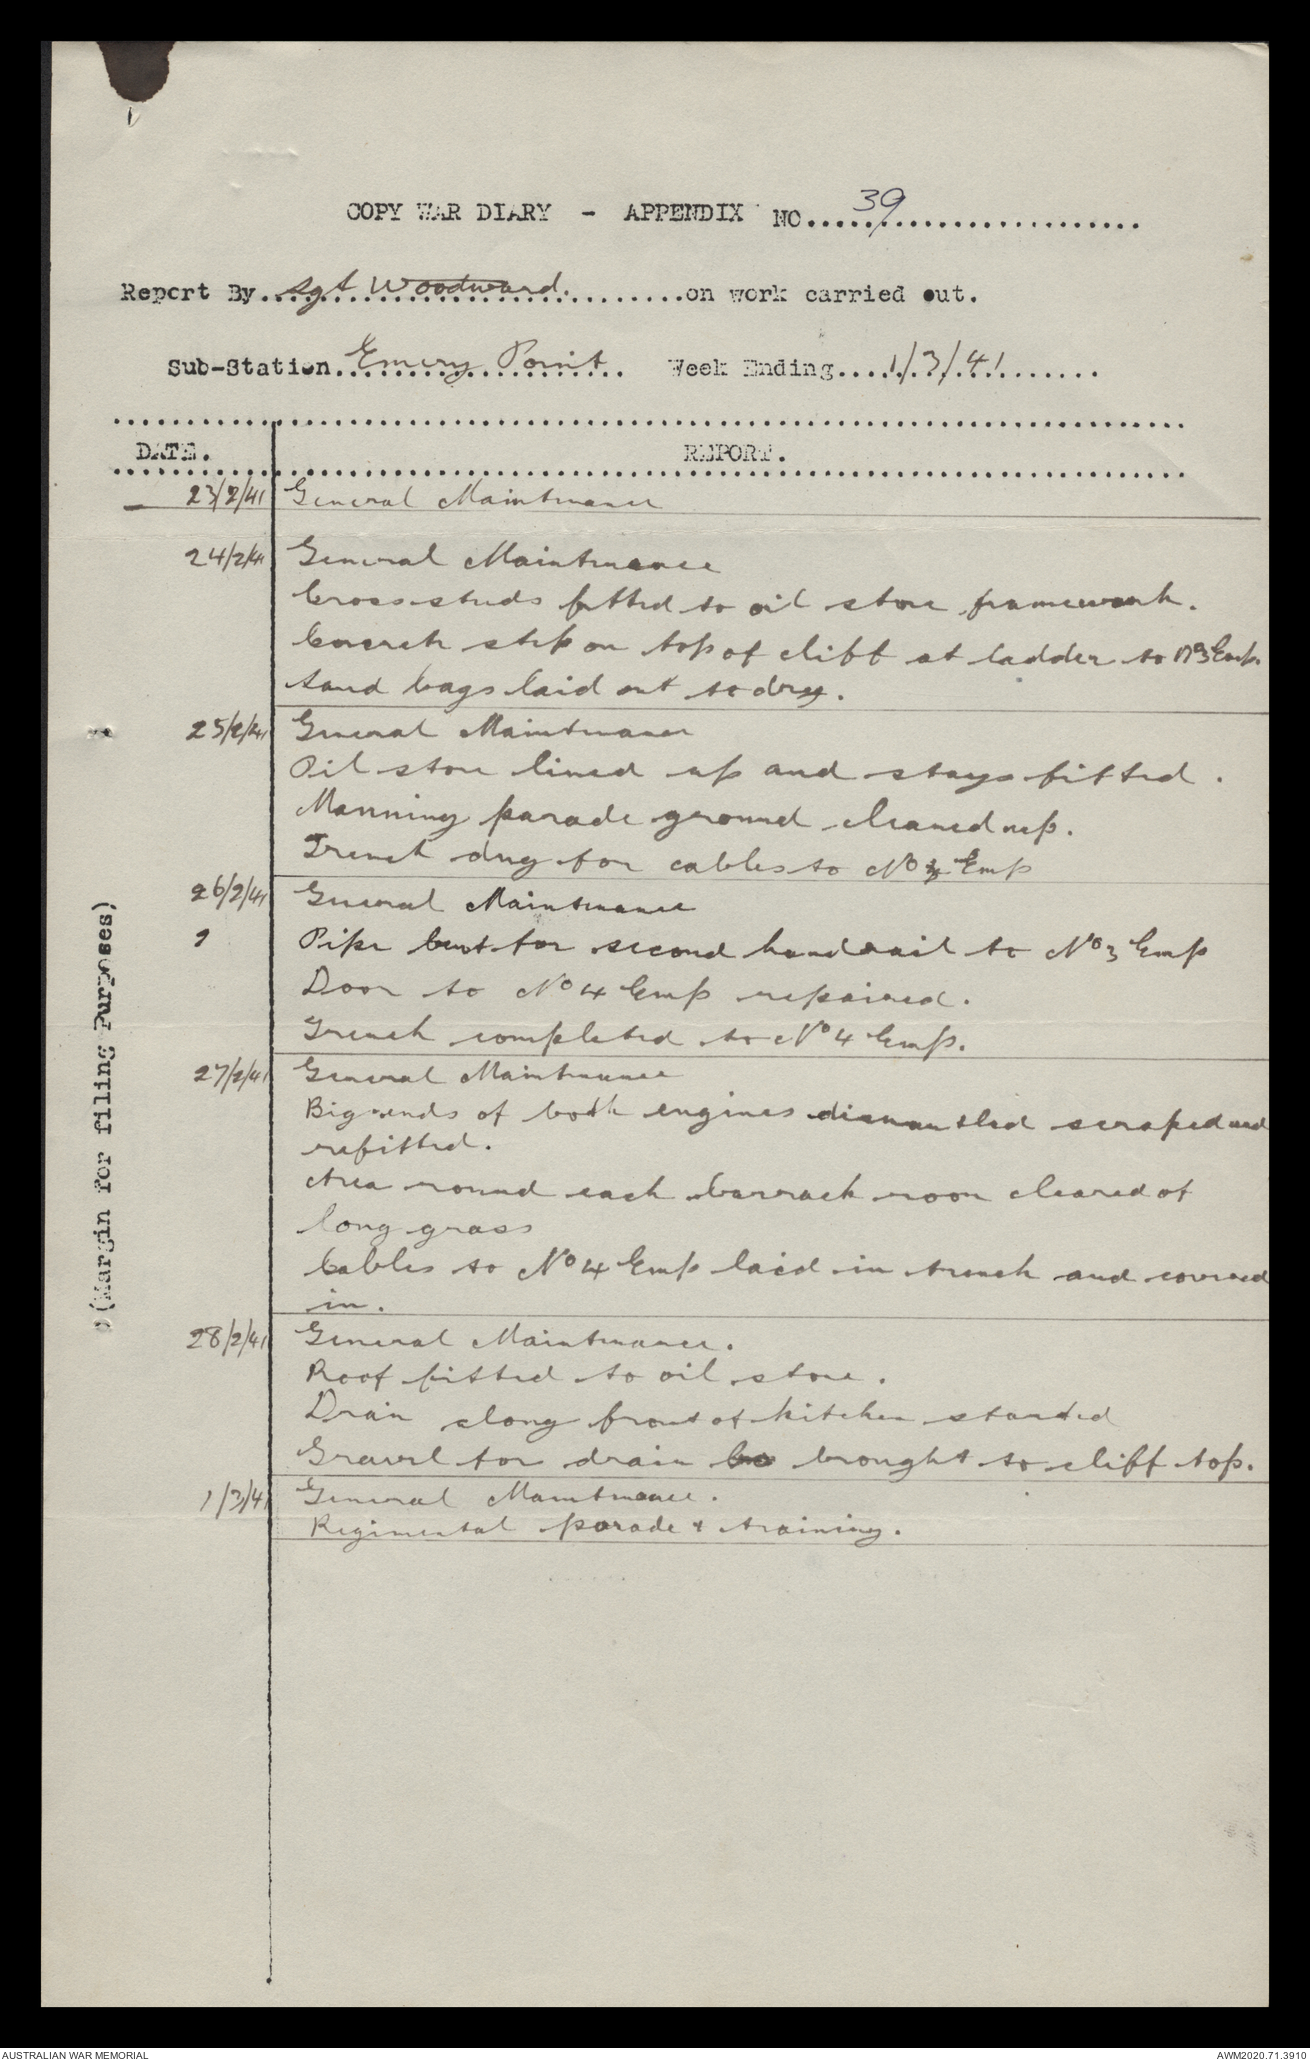 COPY WAR DIARY - APPENDIX NO. 39
Report By Sgt Woodward. on work carried out.
Sub-Station Emery Point Week Ending 1/3/41
DATE. REPORT.
23/2/41 General Maintenance
24/2/41 General Maintenance
Cross studs fitted to oil store framework.
Concrete step on top of cliff at ladder to No 3 Emp.
Sand bags laid out to dry.
25/2/41 General Maintenance
Oil store lined up and stays fitted.
Manning parade ground cleaned up.
Trench dug for cables to No Emp
26/2/41 General Maintenance
Pipe bent for second handrail to No 3 Emp
Door to No 4 Emp repaired.
Trench completed to No 4 Emp.
27/2/41 General Maintenance
Big ends of both engines dismantled scraped and
refitted.
Area round each barrack room cleared of
long grass
Cables to No 4 Emp laid in trench and covered
in.
28/2/41 General Maintenance.
Roof fitted to oil store.
Drain along front of kitchen started
Gravel for drain brought to cliff top.
1/3/41 General Maintenance.
Regimental parade & training.
(Margin for filing Purposes)
AUSTRALIAN WAR MEMORIAL AWM2020.71.3910